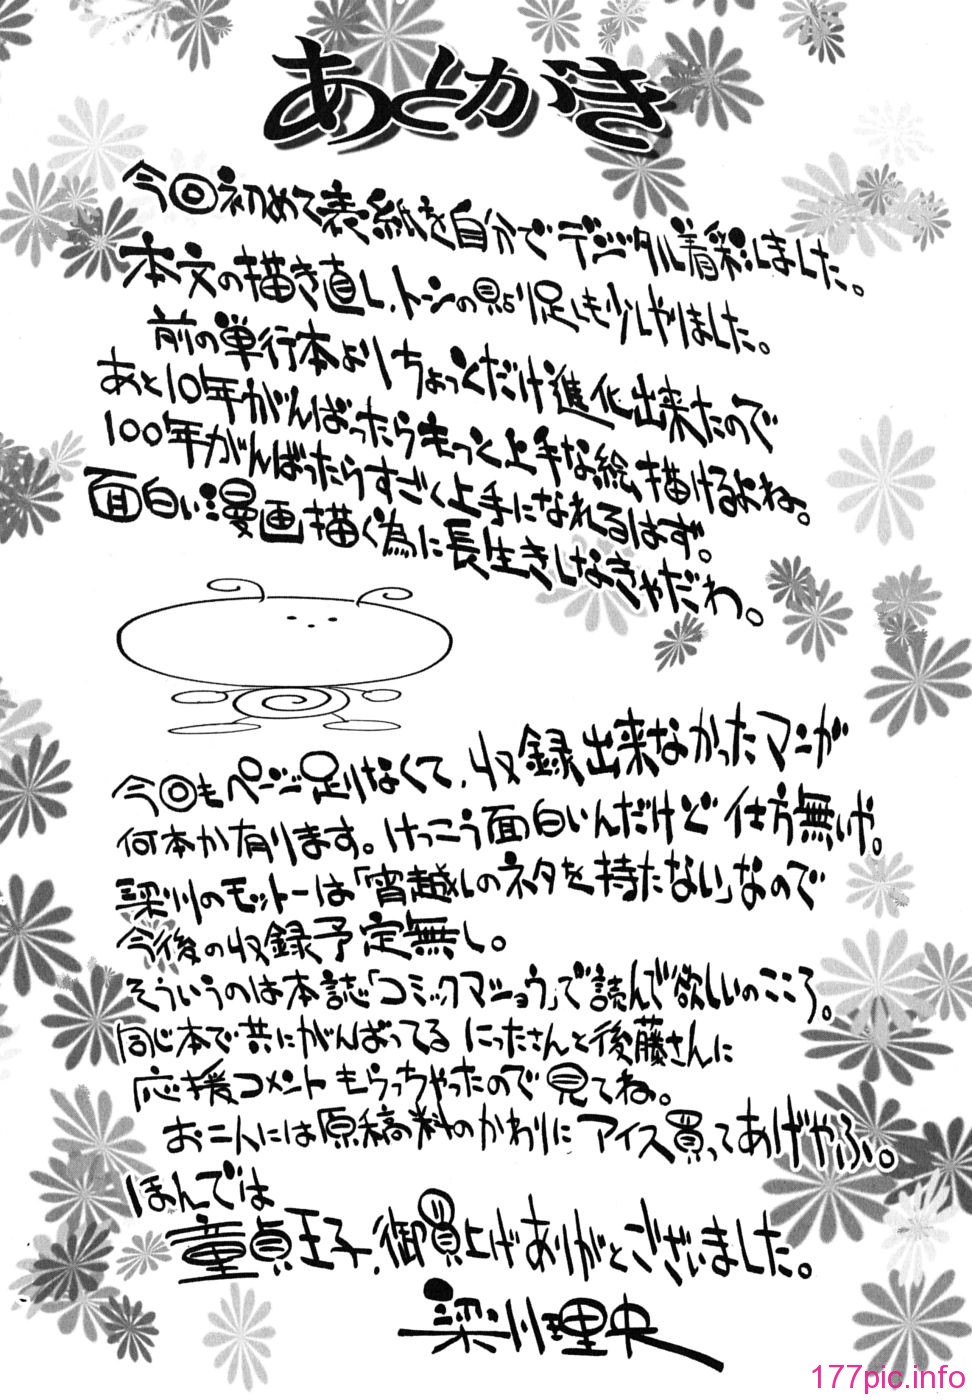 あとがき
今回初めて表紙を自分でデジタル着彩しました。
本文の描き直し、トーンの貼り足しも少しやりました。
前の単行本よりちょっくだけ進化出来たので
あと10年がんばったらもっと上手な絵描けるよね。
100年がんばったらすごく上手になれるはず。
面白い漫画描く為に長生きしなきゃだわ。
今回もページ足りなくて、収録出来なかったマンガ
何本か有ります。けっこう面白いんだけど仕方無いや。
梁川のモットーは「宵越しのネタを持たない」なので
今後の収録予定無し。
そういうのは本誌「コミックマショウ」で読んで欲しいのこころ。
同じ本で共にがんばってる にったさんと後藤さんに
応援コメントもらっちゃったので見てね。
お二人には原稿料のかわりにアイス買ってあげやふ。
ほんでは
童貞王子、御買上げありがとございました。
梁川理央
177pic.info